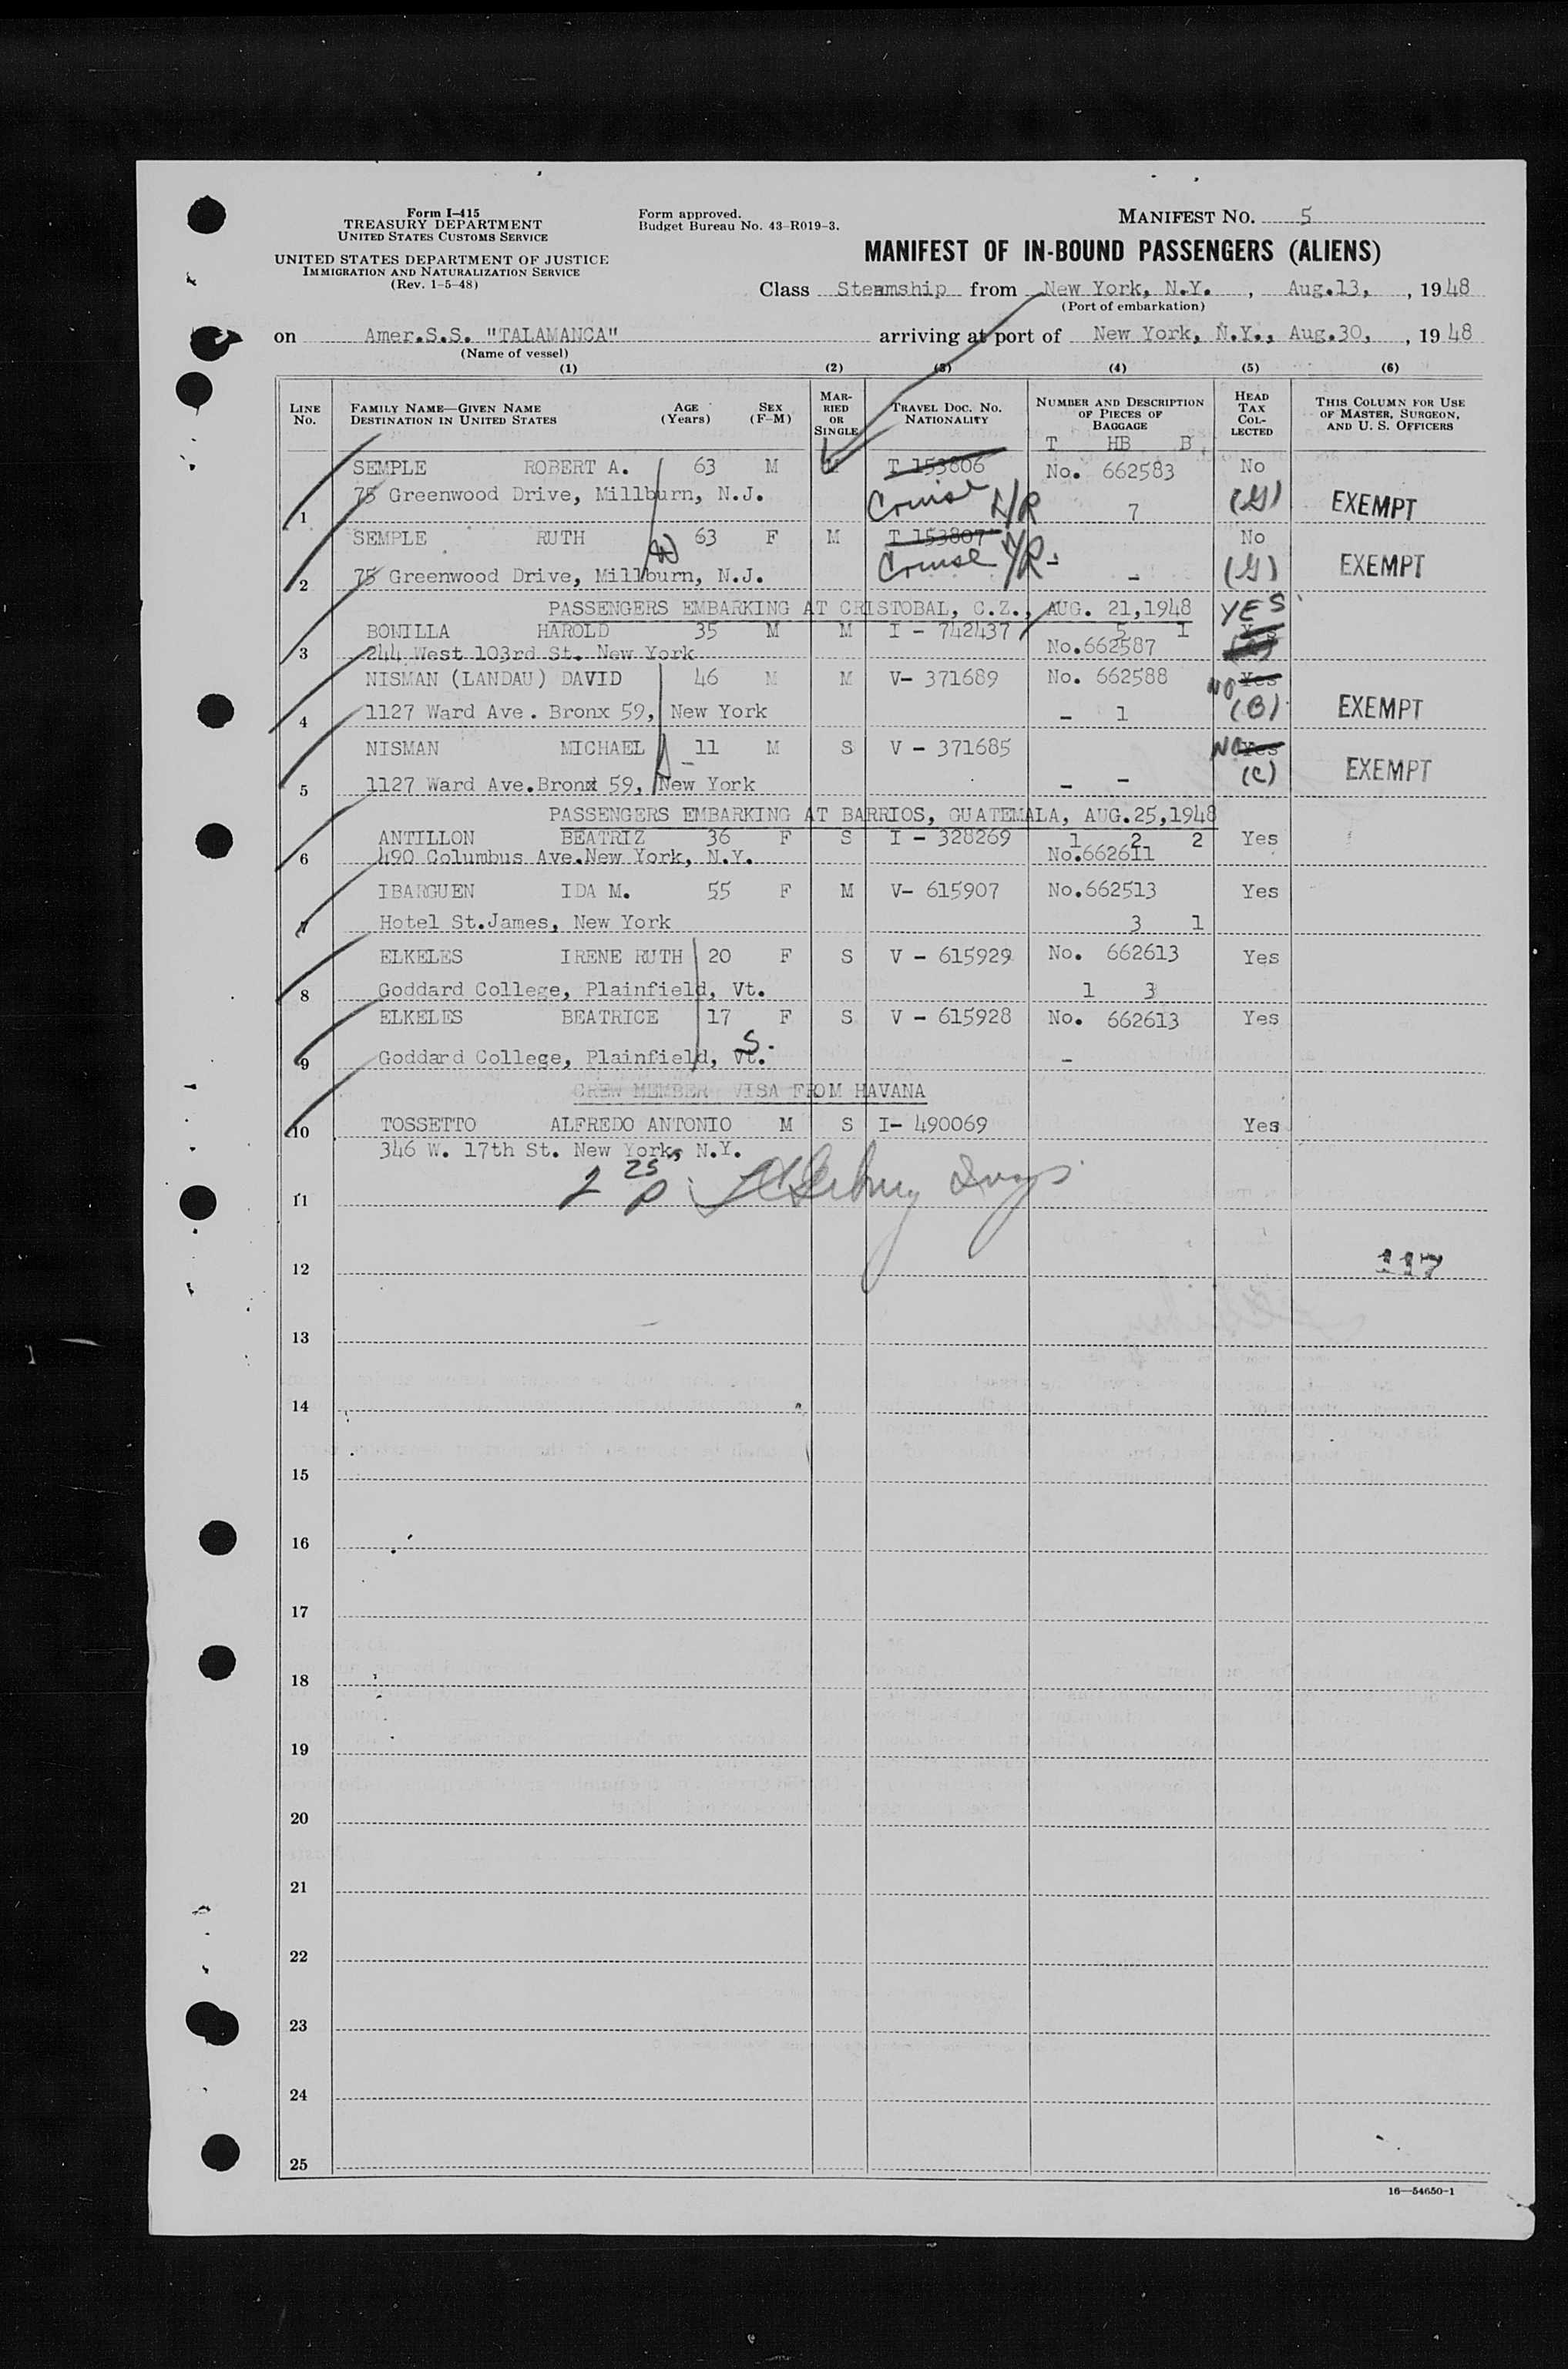 Form I-415
TREASURY DEPARTMENT
UNITED STATES CUSTOMS SERVICE
UNITED STATES DEPARTMENT OF JUSTICE
IMMIGRATION AND NATURALIZATION SERVICE
(Rev. 1-5-48)
Form approved.
Budget Bureau No. 43-R019-3.
MANIFEST NO. 5
MANIFEST OF IN-BOUND PASSENGERS (ALIENS)
Class Steamship from New York, N.Y. , Aug.13, , 1948
(Port of embarkation)
on Amer.S.S. "TALAMANCA" arriving at port of New York, N.Y., Aug.30, , 1948
(Name of vessel)
(1) (2) (3) (4) (5) (6)
LINE No.
FAMILY NAME—GIVEN NAME
DESTINATION IN UNITED STATES
AGE (Years)
SEX (F-M)
MARRIED OR SINGLE
TRAVEL DOC. NO. NATIONALITY
NUMBER AND DESCRIPTION OF PIECES OF BAGGAGE
T HB B
HEAD TAX COLLECTED
THIS COLUMN FOR USE OF MASTER, SURGEON, AND U. S. OFFICERS
SEMPLE ROBERT A. 63 M M T 153806 No. 662583 No
1 75 Greenwood Drive, Millburn, N.J. Cruise N/R 7 (G) EXEMPT
SEMPLE RUTH 63 F M T 153807 No
2 75 Greenwood Drive, Millburn, N.J. Cruise N/R - - (G) EXEMPT
PASSENGERS EMBARKING AT CRISTOBAL, C.Z., AUG. 21,1948 YES
BONILLA HAROLD 35 M M I - 742437 5 1
3 244 West 103rd St. New York No.662587
NISMAN (LANDAU) DAVID 46 M M V- 371689 No. 662588 NO Yes
4 1127 Ward Ave. Bronx 59, New York - 1 (B) EXEMPT
NISMAN MICHAEL 11 M S V - 371685 NO Yes
5 1127 Ward Ave.Bronx 59, New York - - (C) EXEMPT
PASSENGERS EMBARKING AT BARRIOS, GUATEMALA, AUG.25,1948
ANTILLON BEATRIZ 36 F S I - 328269 1 2 2 Yes
6 490 Columbus Ave.New York, N.Y. No.662611
IBARGUEN IDA M. 55 F M V- 615907 No.662513 Yes
7 Hotel St.James, New York 3 1
ELKELES IRENE RUTH 20 F S V - 615929 No. 662613 Yes
8 Goddard College, Plainfield, Vt. 1 3
ELKELES BEATRICE 17 F S V - 615928 No. 662613 Yes
9 Goddard College, Plainfield, Vt. S. -
CREW MEMBER VISA FROM HAVANA
10 TOSSETTO ALFREDO ANTONIO M S I- 490069 Yes
346 W. 17th St. New York, N.Y.
11
12 117
13
14
15
16
17
18
19
20
21
22
23
24
25
16—54650-1